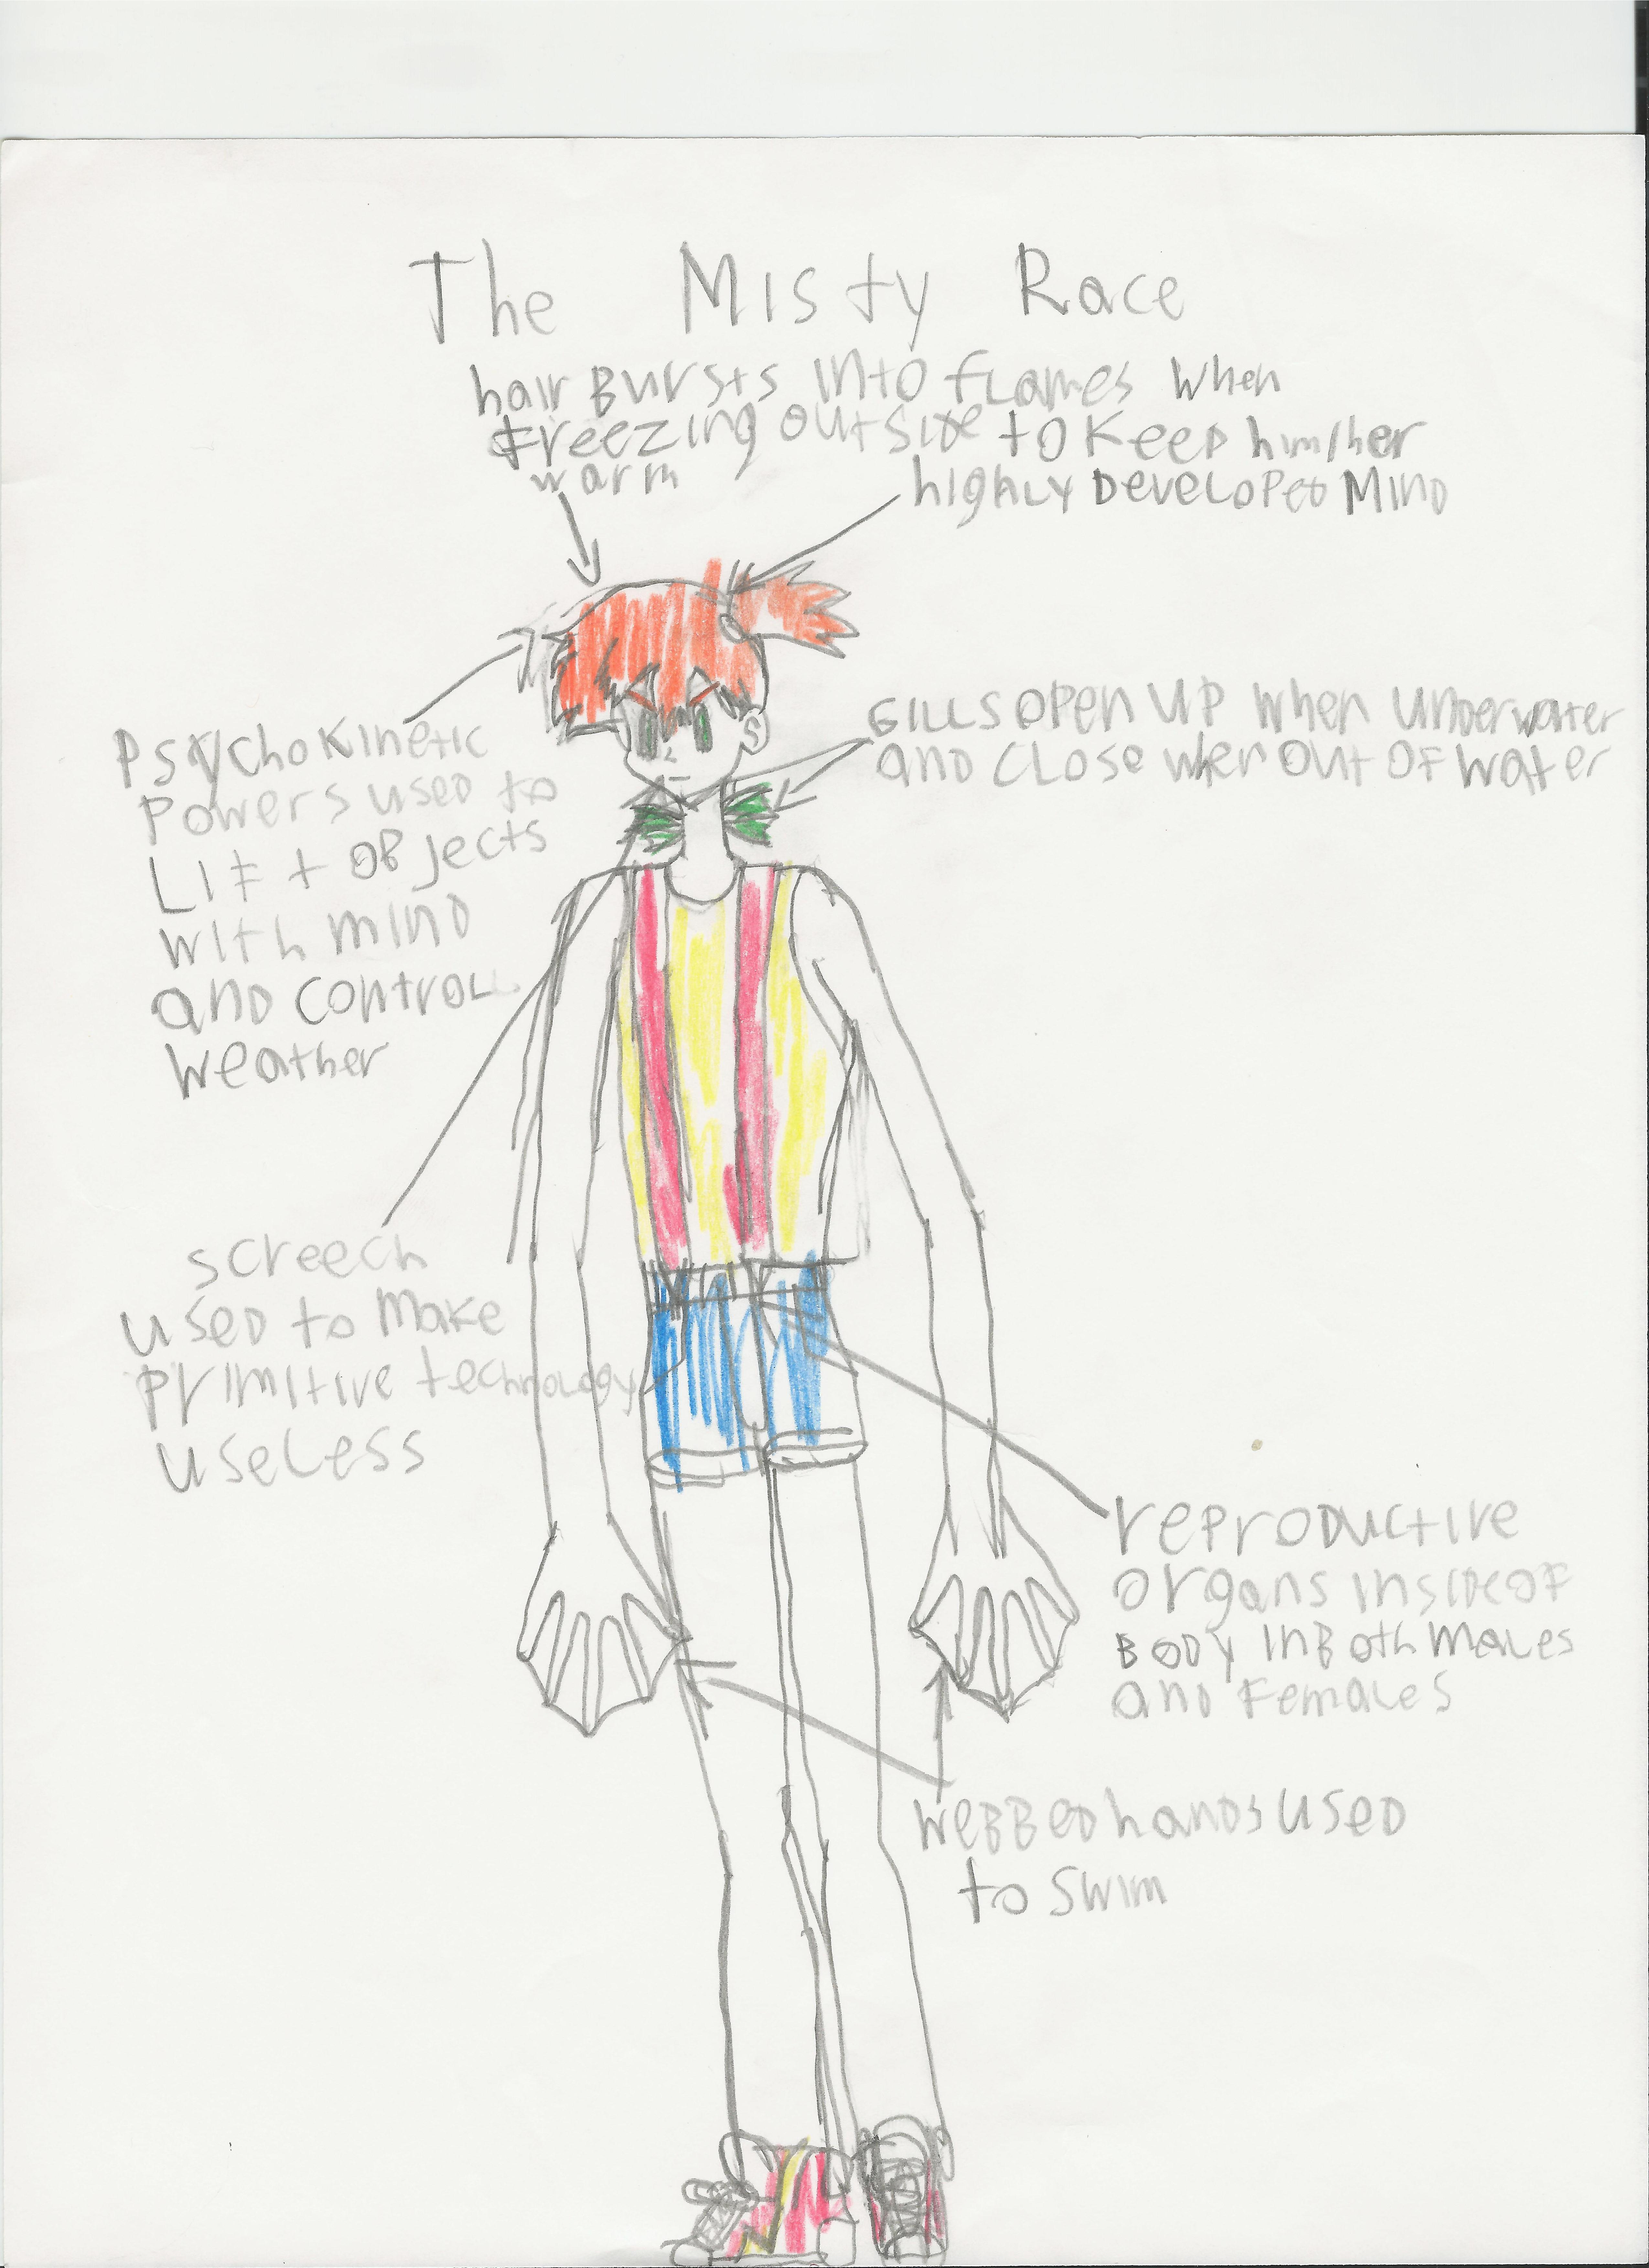 The Misty Race
hair Bursts into flames when
freezing outside to keep him/her
warm
highly Developed Mind
Gills open up when underwater
and close when out of water
Psychokinetic
Powers used to
Lift objects
with mind
and control
weather
screech
used to make
primitive technology
useless
reproductive
organs inside of
Body in Both males
and females
webbed hands used
to swim